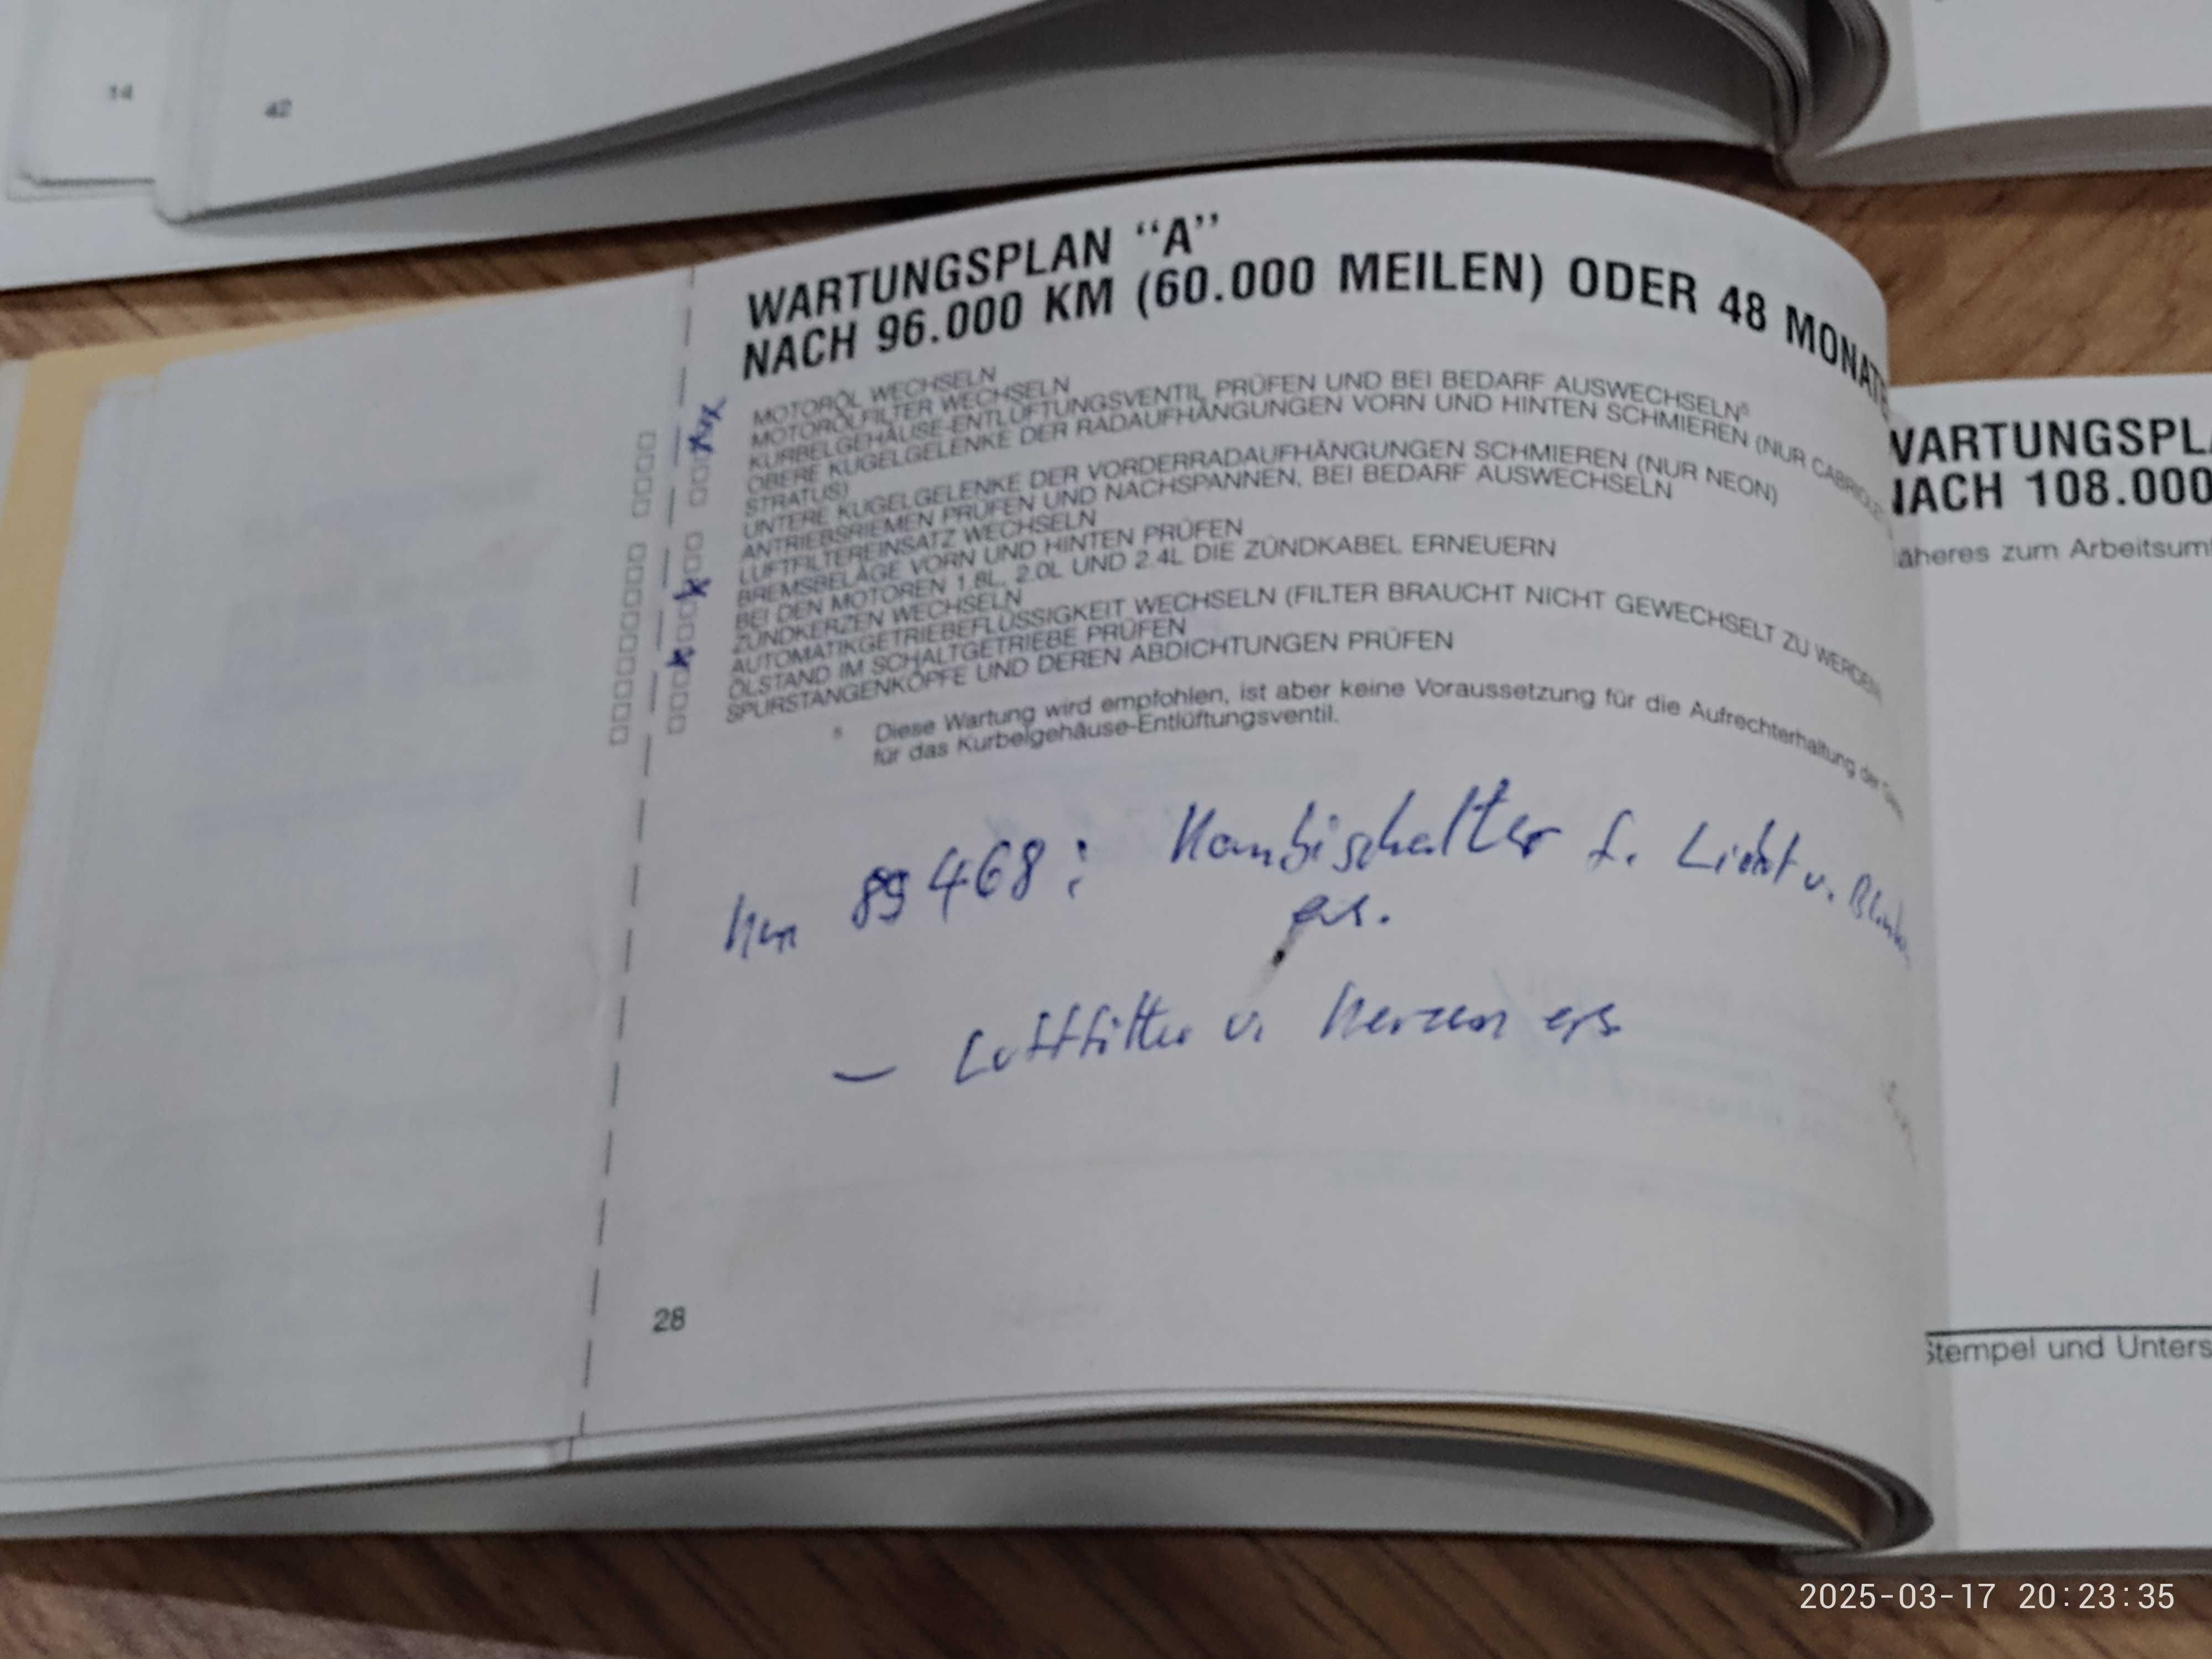 14
42
WARTUNGSPLAN “A”
NACH 96.000 KM (60.000 MEILEN) ODER 48 MONATE
MOTORÖL WECHSELN
MOTORÖLFILTER WECHSELN
KURBELGEHÄUSE-ENTLÜFTUNGSVENTIL PRÜFEN UND BEI BEDARF AUSWECHSELN⁵
OBERE KUGELGELENKE DER RADAUFHÄNGUNGEN VORN UND HINTEN SCHMIEREN (NUR CABRIOLET
STRATUS)
UNTERE KUGELGELENKE DER VORDERRADAUFHÄNGUNGEN SCHMIEREN (NUR NEON)
ANTRIEBSRIEMEN PRÜFEN UND NACHSPANNEN, BEI BEDARF AUSWECHSELN
LUFTFILTEREINSATZ WECHSELN
BREMSBELÄGE VORN UND HINTEN PRÜFEN
BEI DEN MOTOREN 1.8L, 2.0L UND 2.4L DIE ZÜNDKABEL ERNEUERN
ZÜNDKERZEN WECHSELN
AUTOMATIKGETRIEBEFLÜSSIGKEIT WECHSELN (FILTER BRAUCHT NICHT GEWECHSELT ZU WERDEN)
ÖLSTAND IM SCHALTGETRIEBE PRÜFEN
SPURSTANGENKÖPFE UND DEREN ABDICHTUNGEN PRÜFEN
5 Diese Wartung wird empfohlen, ist aber keine Voraussetzung für die Aufrechterhaltung der
für das Kurbelgehäuse-Entlüftungsventil.
Km 89468: Kombischalter f. Licht u.
ers.
– Luftfilter u. Kerzen ers
28
WARTUNGSPLA
NACH 108.000
äheres zum Arbeitsum
Stempel und Unters
2025-03-17 20:23:35